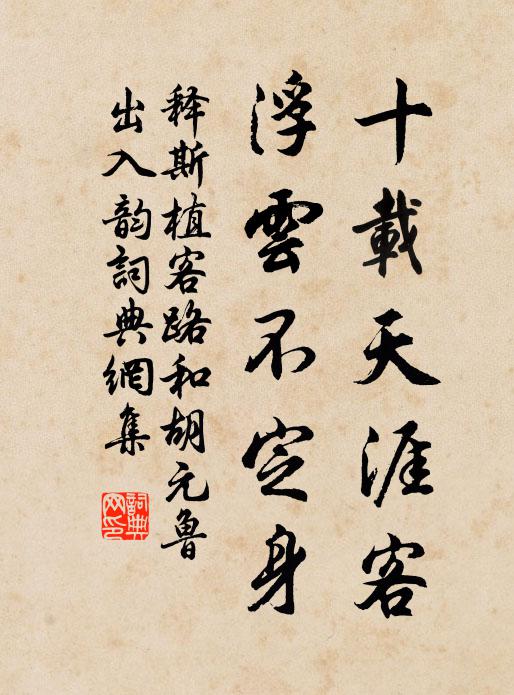 十載天涯客
浮雲不定身
释斯植客路和胡元魯
出入韵詞典網集
詞典网印